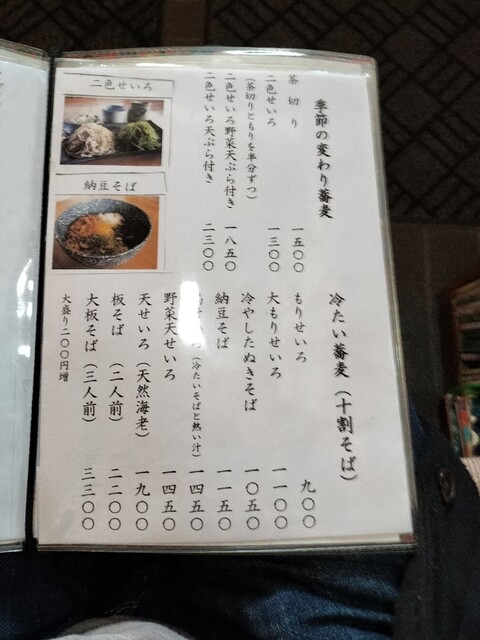 季節の変わり蕎麦
茶切り 一五〇〇
二色せいろ 一三〇〇
(茶切りともりを半分ずつ)
二色せいろ野菜天ぷら付き 一八五〇
二色せいろ天ぷら付き 二三〇〇
二色せいろ
納豆そば
冷たい蕎麦(十割そば)
もりせいろ 九〇〇
大もりせいろ 一一〇〇
冷やしたぬきそば 一〇五〇
納豆そば 一一五〇
(冷たいそばと熱い汁) 一四五〇
野菜天せいろ 一四五〇
天せいろ(天然海老) 一九〇〇
板そば(二人前) 二二〇〇
大板そば(三人前) 三三〇〇
大盛り二〇〇円増